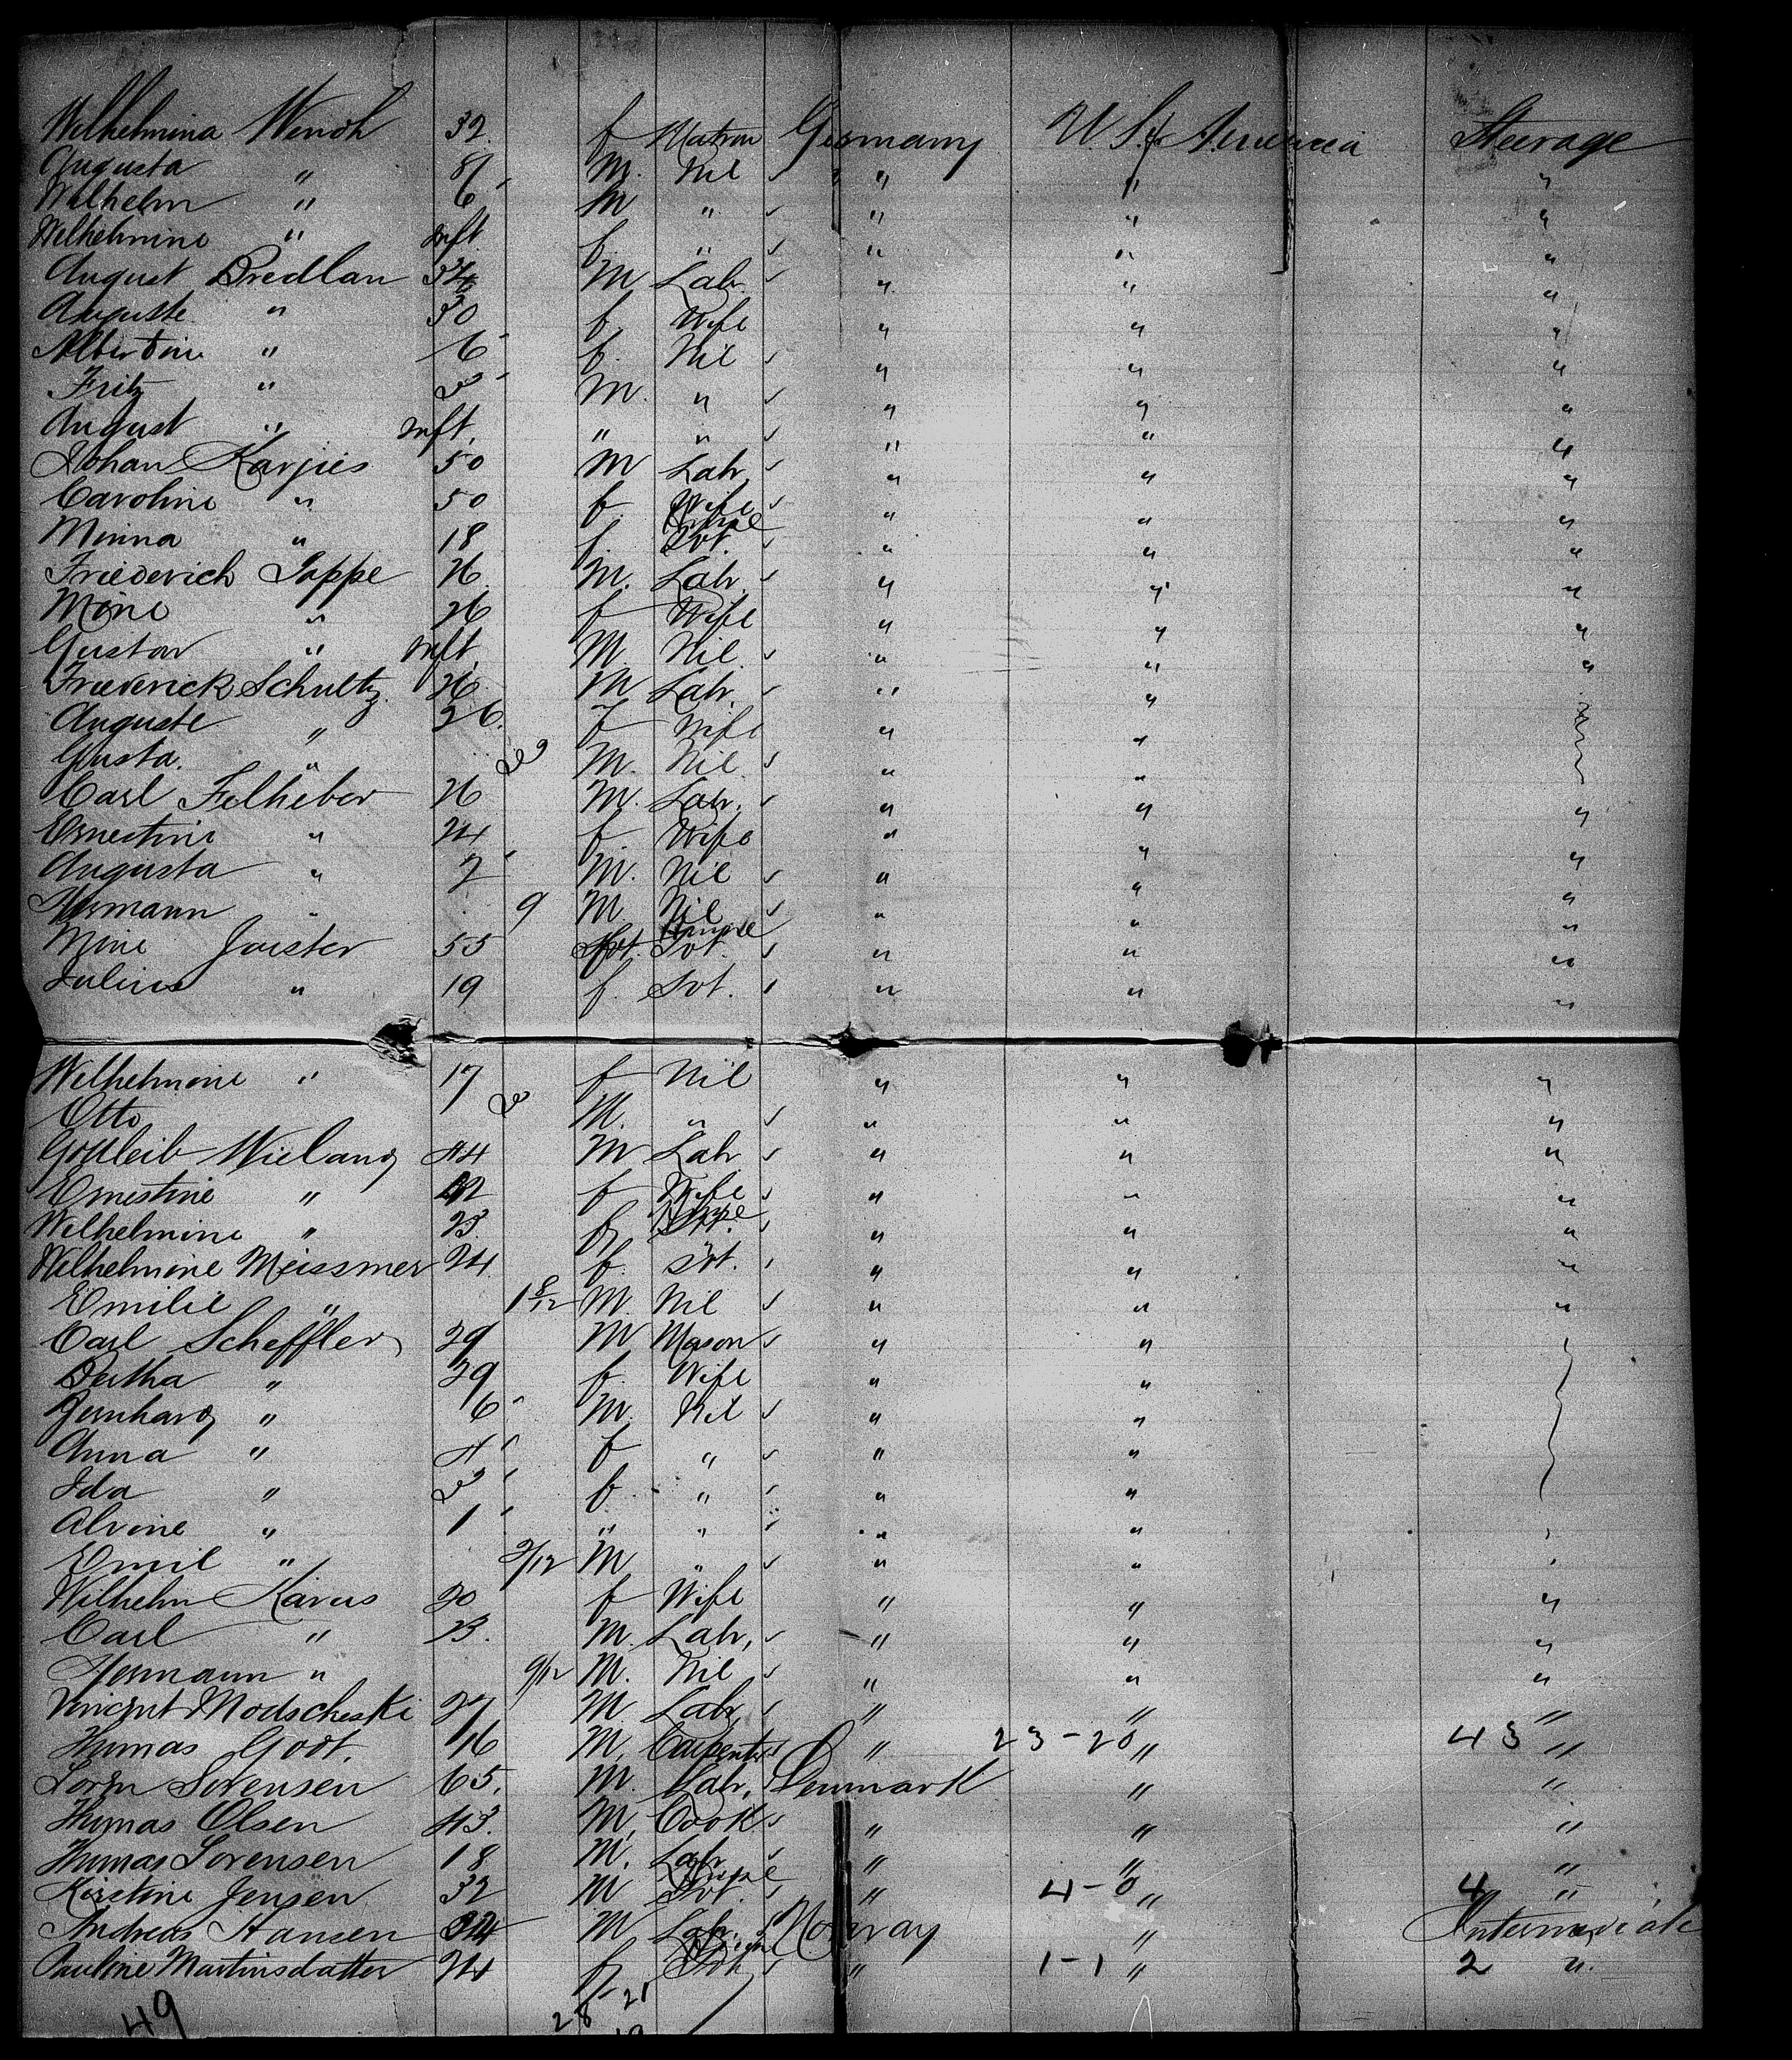 Wilhelmina Wendh 32 f Matron Germany U. S. of America Steerage
Augusta " 8 M. Nil " " "
Wilhelm " 6 M " " " "
Wilhelmine " inft f " " " "
August Bredlan 34 M Labr. " " "
Auguste " 30 f. Wife " " "
Albertine " 6 f. Nil " " "
Fritz " 3 M. " " " "
August " inft. " " " " "
Johan Karjies 50 M Labr " " "
Caroline " 50 f. Wife " " "
Minna " 18 f. Svt. " " "
Friederich Pappe 26 M. Labr. " " "
Mine " 26 f Wife " " "
Gustav " inft. M. Nil. " " "
Frederick Schultz 26 M Labr. " "
Auguste " 26. f Wife " "
Gusta. " M. Nil. " "
Carl Felheber 26 M. Labr. " " "
Ernestine " 24 f. Wife " " "
Augusta " 2 M. Nil " " "
Hermann " 9 M. Nil " " "
Mine Joister 55 Svt. " " "
Julius " 19 f. Svt. " " "
Wilhelmine " 17 f Nil " " "
Otto 3 M. " " " "
Gottleib Wieland 44 M Labr " " "
Ernestine " 42 f Wife " " "
Wilhelmine " 23. f " " "
Wilhelmine Meissmer 24 f. Svt. " " "
Emilie " 1 8/12 M. Nil " " "
Carl Scheffler 29 M Mason " "
Bertha " 29 f. Wife " "
Bernhard " 6 M. Nil " "
Anna " 4 f " " "
Ida " 3 f. " " "
Alvine " 1 " " " "
Emil " 2/12 M " " "
Wilhelm Karus 20 f Wife " " "
Carl " 23. M. Labr, " " "
Hermann " 9/12 M. Nil " " "
Vincent Modscheski 27 M. Labr, " " "
Humas Godt. 16 M. Carpenter " 23-20 " 43 "
Soren Sorensen 65. M. Labr. Denmark " "
Humas Olsen 43. M. Cook " " "
Humas Sorensen 18 M. Labr " " "
Kirstine Jensen 32 M Svt. " 4-0 " 4 "
Andreas Hansen 34 M Labr. Norway " Intermediate
Pauline Martinsdatter 24 f " 1-1 " 2 ".
49 28 21